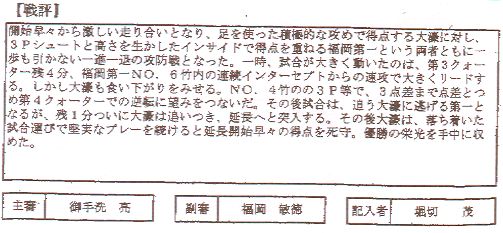 【戦評】
開始早々から激しい走り合いとなり、足を使った積極的な攻めで得点する大濠に対し、
3Pシュートと高さを生かしたインサイドで得点を重ねる福岡第一という両者ともに一
歩も引かない一進一退の攻防戦となった。一時、試合が大きく動いたのは、第3クォー
ター残4分、福岡第一NO.6竹内の連続インターセプトからの速攻で大きくリードす
る。しかし大濠も食い下がりをみせる。NO.4竹のの3P等で、3点差まで点差をつ
め第4クォーターでの逆転に望みをつないだ。その後試合は、追う大濠に逃げる第一と
なるが、残1分ついに大濠は追いつき、延長へと突入する。その後大濠は、落ち着いた
試合運びで堅実なプレーを続けると延長開始早々の得点を死守。優勝の栄光を手中に収
めた。
主審 御手洗 亮 副審 福岡 敏徳 記入者 堀切 茂